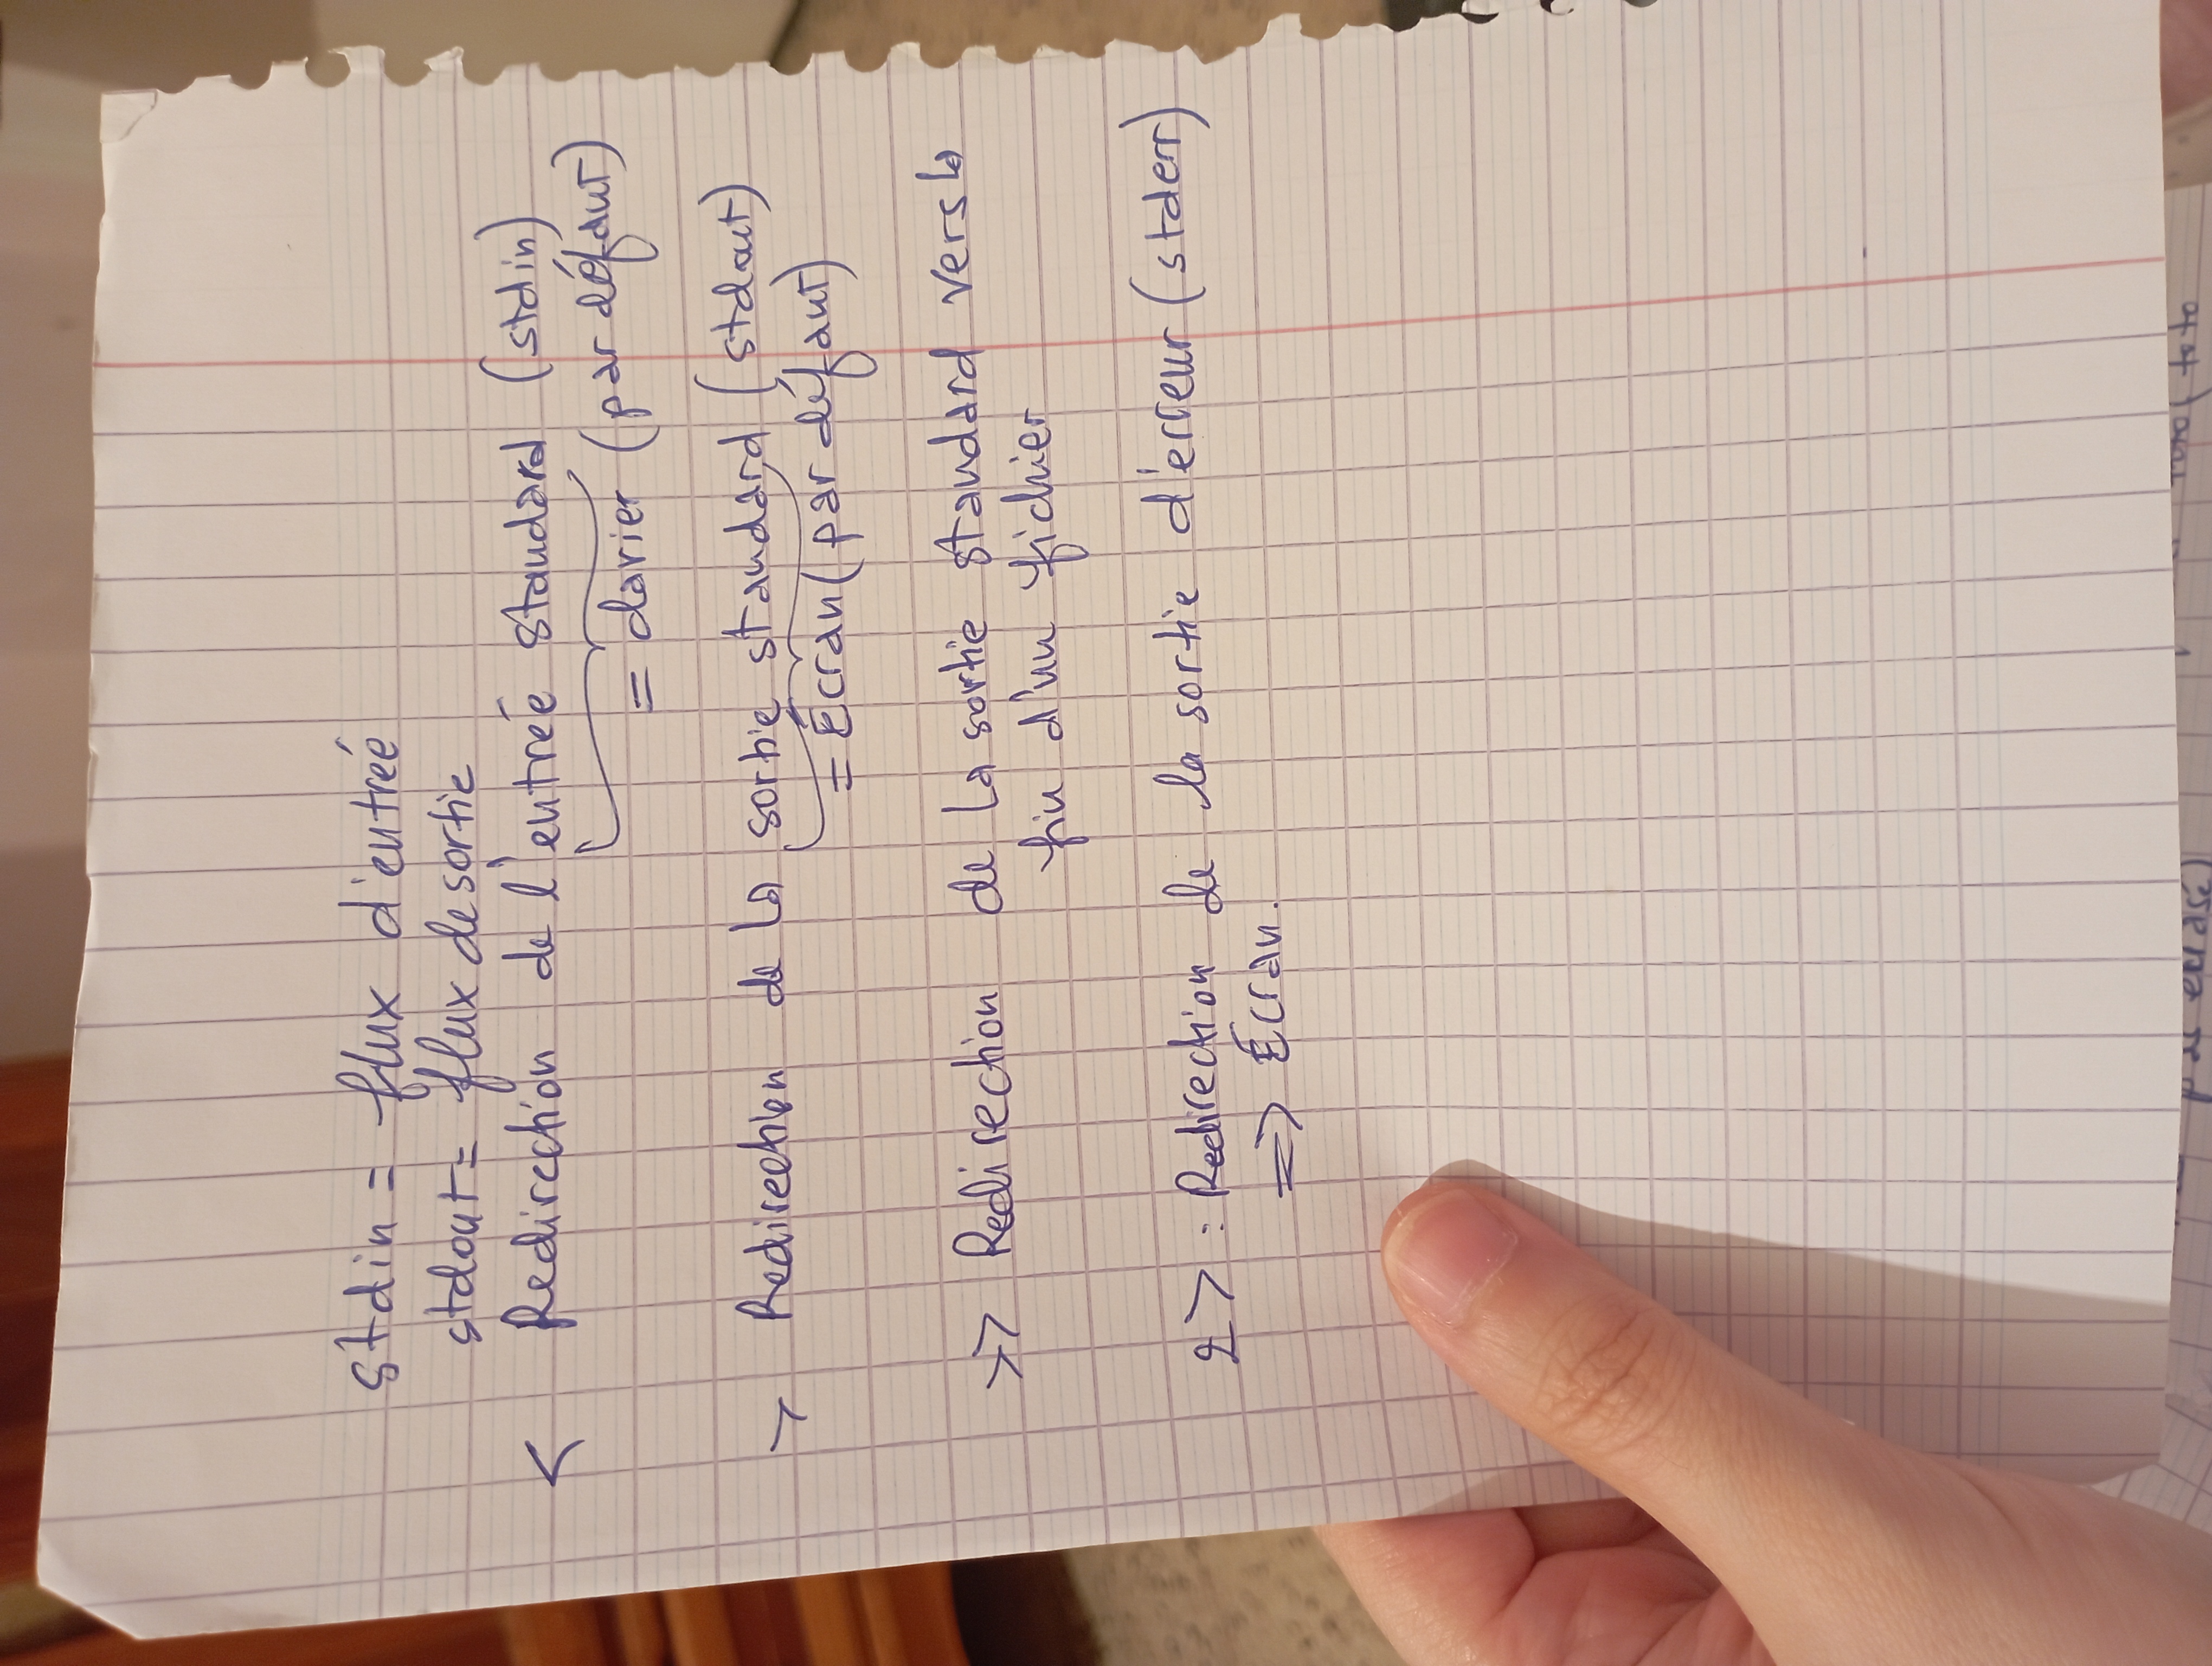 stdin = flux d'entrée
stdout = flux de sortie
< Redirection de l'entrée standard (stdin)
= clavier (par défaut)
> Redirection de la sortie standard (stdout)
= Écran (par défaut)
>> Redirection de la sortie standard vers la
fin d'un fichier
2> : Redirection de la sortie d'erreur (stderr)
=> Écran.
pas écrasé)
toto